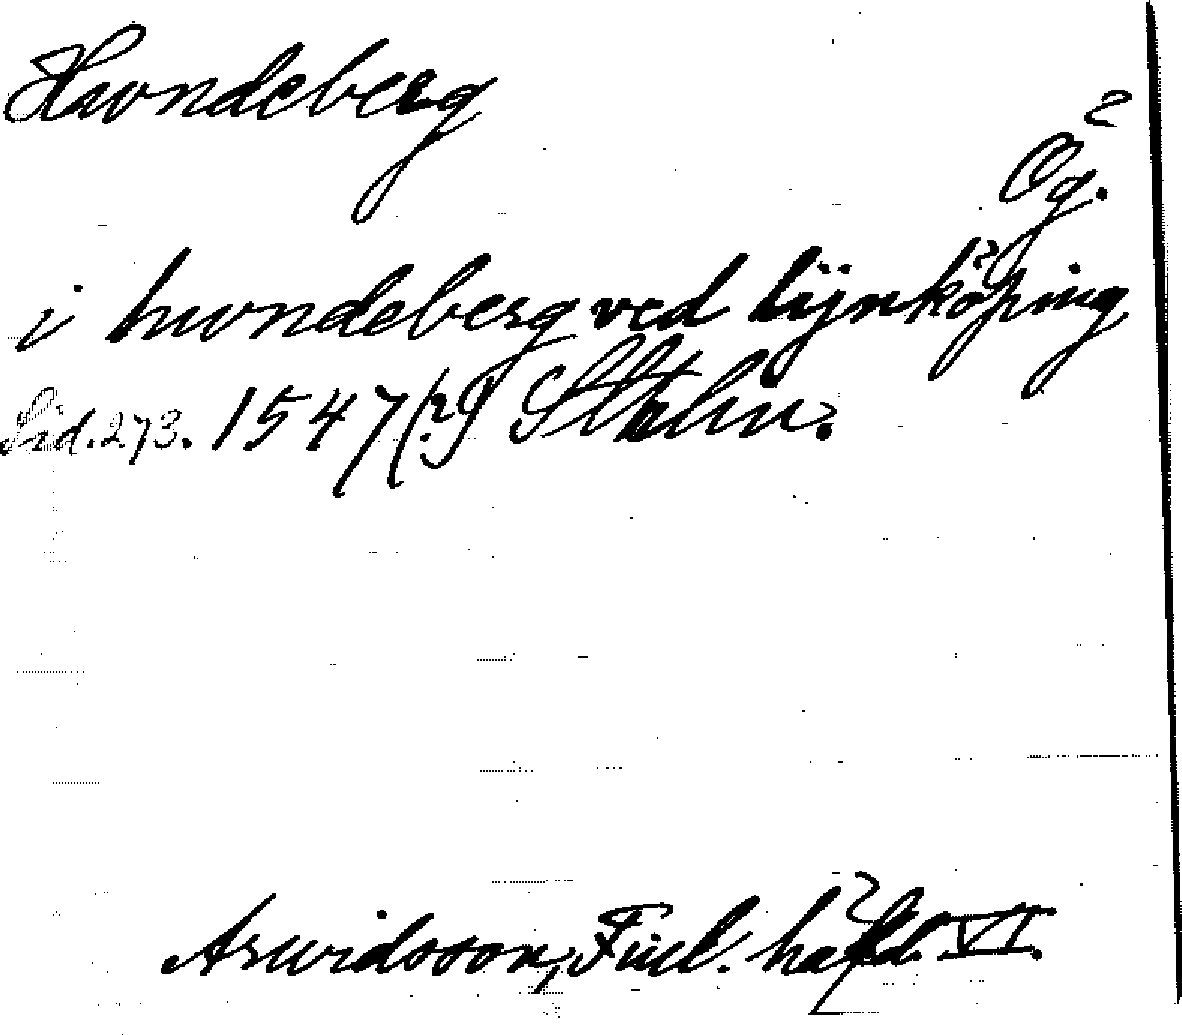 Hwndeberg
Ög.
i hwndeberg ved lijnköping
Sid. 273. 1547 (?)
Arwidsson, Finl. häfd. VI.